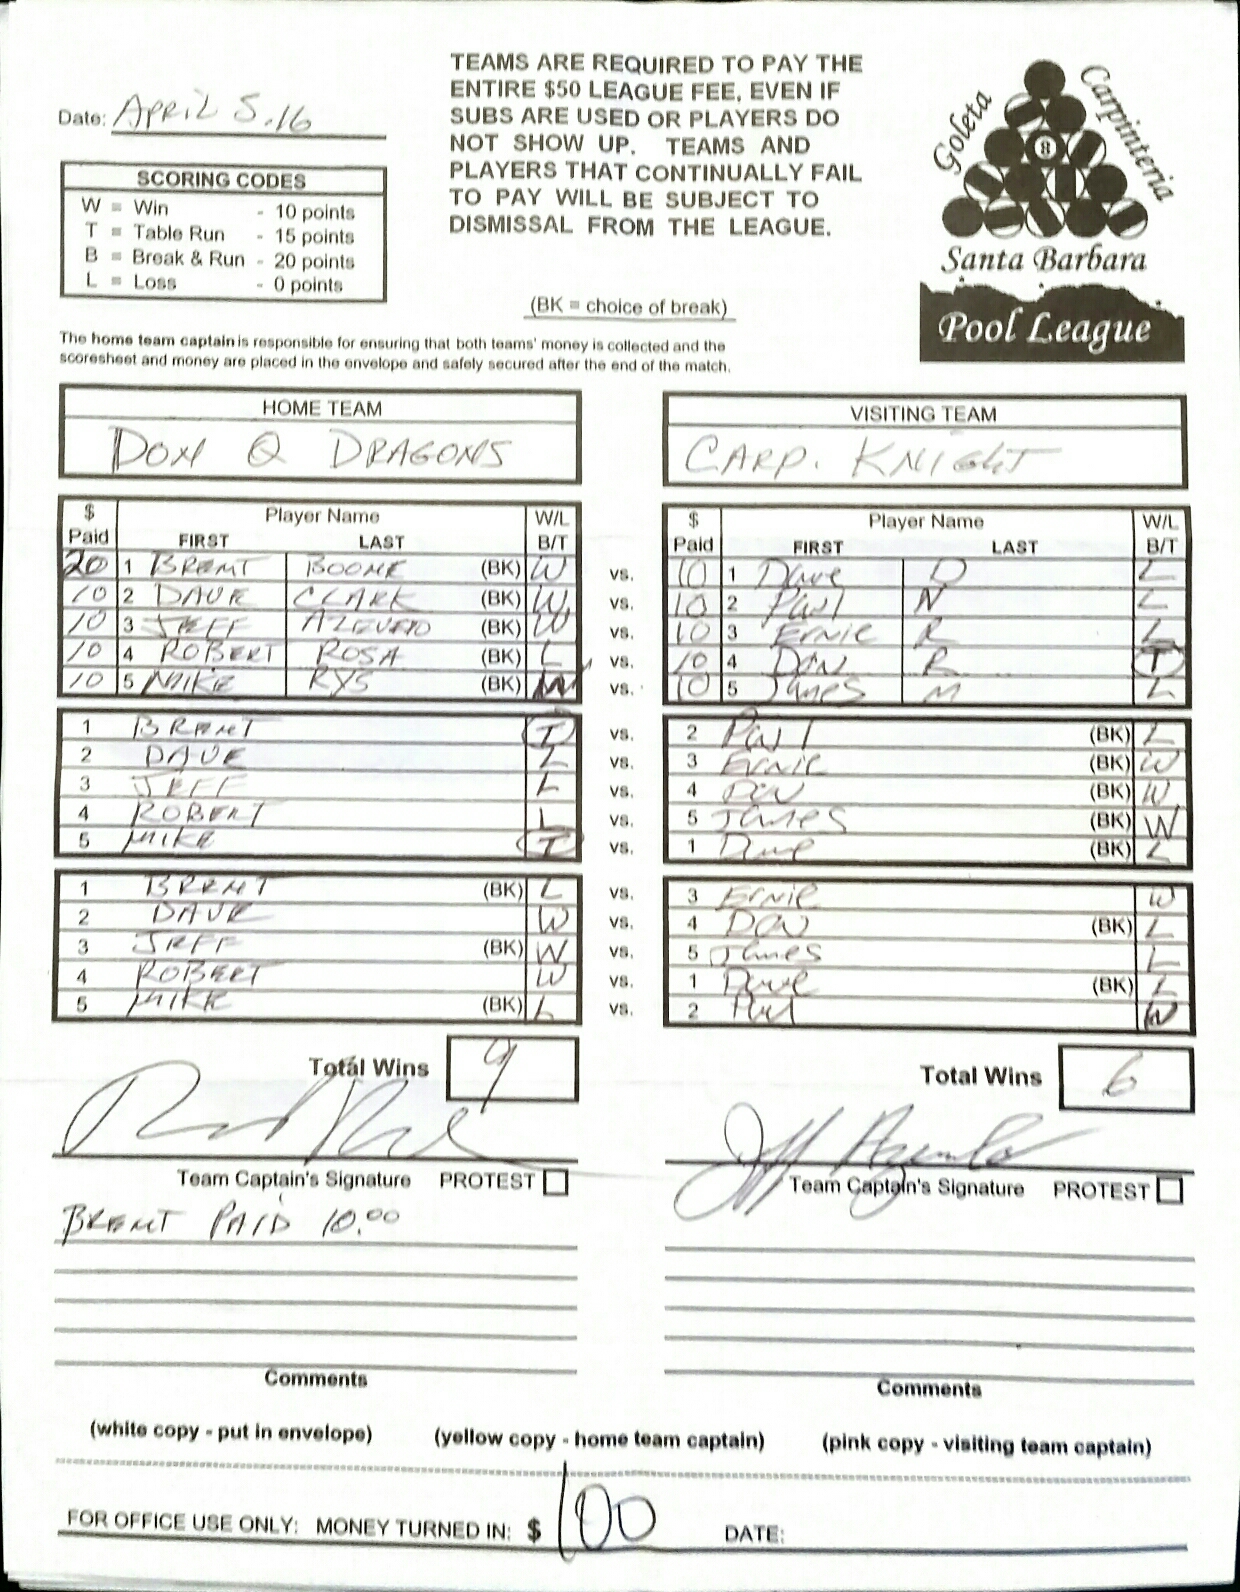 Date: APRIL 5.16
SCORING CODES
W = Win - 10 points
T = Table Run - 15 points
B = Break & Run - 20 points
L = Loss - 0 points
TEAMS ARE REQUIRED TO PAY THE
ENTIRE $50 LEAGUE FEE, EVEN IF
SUBS ARE USED OR PLAYERS DO
NOT SHOW UP. TEAMS AND
PLAYERS THAT CONTINUALLY FAIL
TO PAY WILL BE SUBJECT TO
DISMISSAL FROM THE LEAGUE.
(BK = choice of break)
Goleta
Carpinteria
8
Santa Barbara
Pool League
The home team captain is responsible for ensuring that both teams' money is collected and the
scoresheet and money are placed in the envelope and safely secured after the end of the match.
HOME TEAM
DON Q DRAGONS
VISITING TEAM
CARP. KNIGHT
$ Paid Player Name FIRST LAST W/L B/T
$ Paid Player Name FIRST LAST W/L B/T
20 1 BRENT BOONE (BK) W vs. 10 1 Dave D L
10 2 DAVE CLARK (BK) W vs. 10 2 Paul N L
10 3 JEFF AZEVEDO (BK) W vs. 10 3 Ernie R L
10 4 ROBERT ROSA (BK) L vs. 10 4 DON R T
10 5 MIKE RYS (BK) W vs. 10 5 James M L
1 BRENT T vs. 2 Paul (BK) L
2 DAVE L vs. 3 Ernie (BK) W
3 JEFF L vs. 4 DON (BK) W
4 ROBERT L vs. 5 James (BK) W
5 MIKE T vs. 1 Dave (BK) L
1 BRENT (BK) L vs. 3 Ernie W
2 DAVE W vs. 4 DON (BK) L
3 JEFF (BK) W vs. 5 James L
4 ROBERT W vs. 1 Dave (BK) L
5 MIKE (BK) L vs. 2 Paul W
Total Wins 9
Total Wins 6
Jeff Azevedo
Team Captain's Signature PROTEST
Team Captain's Signature PROTEST
BRENT PAID 10.00
Comments
Comments
(white copy - put in envelope) (yellow copy - home team captain) (pink copy - visiting team captain)
FOR OFFICE USE ONLY: MONEY TURNED IN: $ 100 DATE: